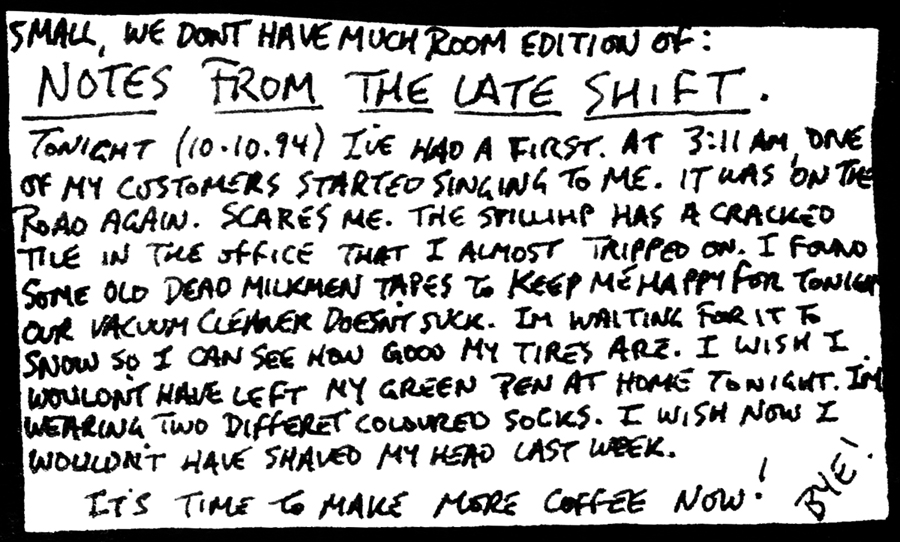 SMALL, WE DONT HAVE MUCH ROOM EDITION OF:
NOTES FROM THE LATE SHIFT.
TONIGHT (10.10.94) I'VE HAD A FIRST. AT 3:11 AM, ONE
OF MY CUSTOMERS STARTED SINGING TO ME. IT WAS ON THE
ROAD AGAIN. SCARES ME. THE HAS A CRACKED
TILE IN THE OFFICE THAT I ALMOST TRIPPED ON. I FOUND
SOME OLD DEAD MILKMEN TAPES TO KEEP ME HAPPY FOR TONIGH
OUR VACUUM CLEANER DOESN'T SUCK. IM WAITING FOR IT TO
SNOW SO I CAN SEE HOW GOOD MY TIRES ARE. I WISH I
WOULDN'T HAVE LEFT MY GREEN PEN AT HOME TONIGHT. I'M
WEARING TWO DIFFERET COLOURED SOCKS. I WISH NOW I
WOULDN'T HAVE SHAVED MY HEAD LAST WEEK.
IT'S TIME TO MAKE MORE COFFEE NOW!
BYE!